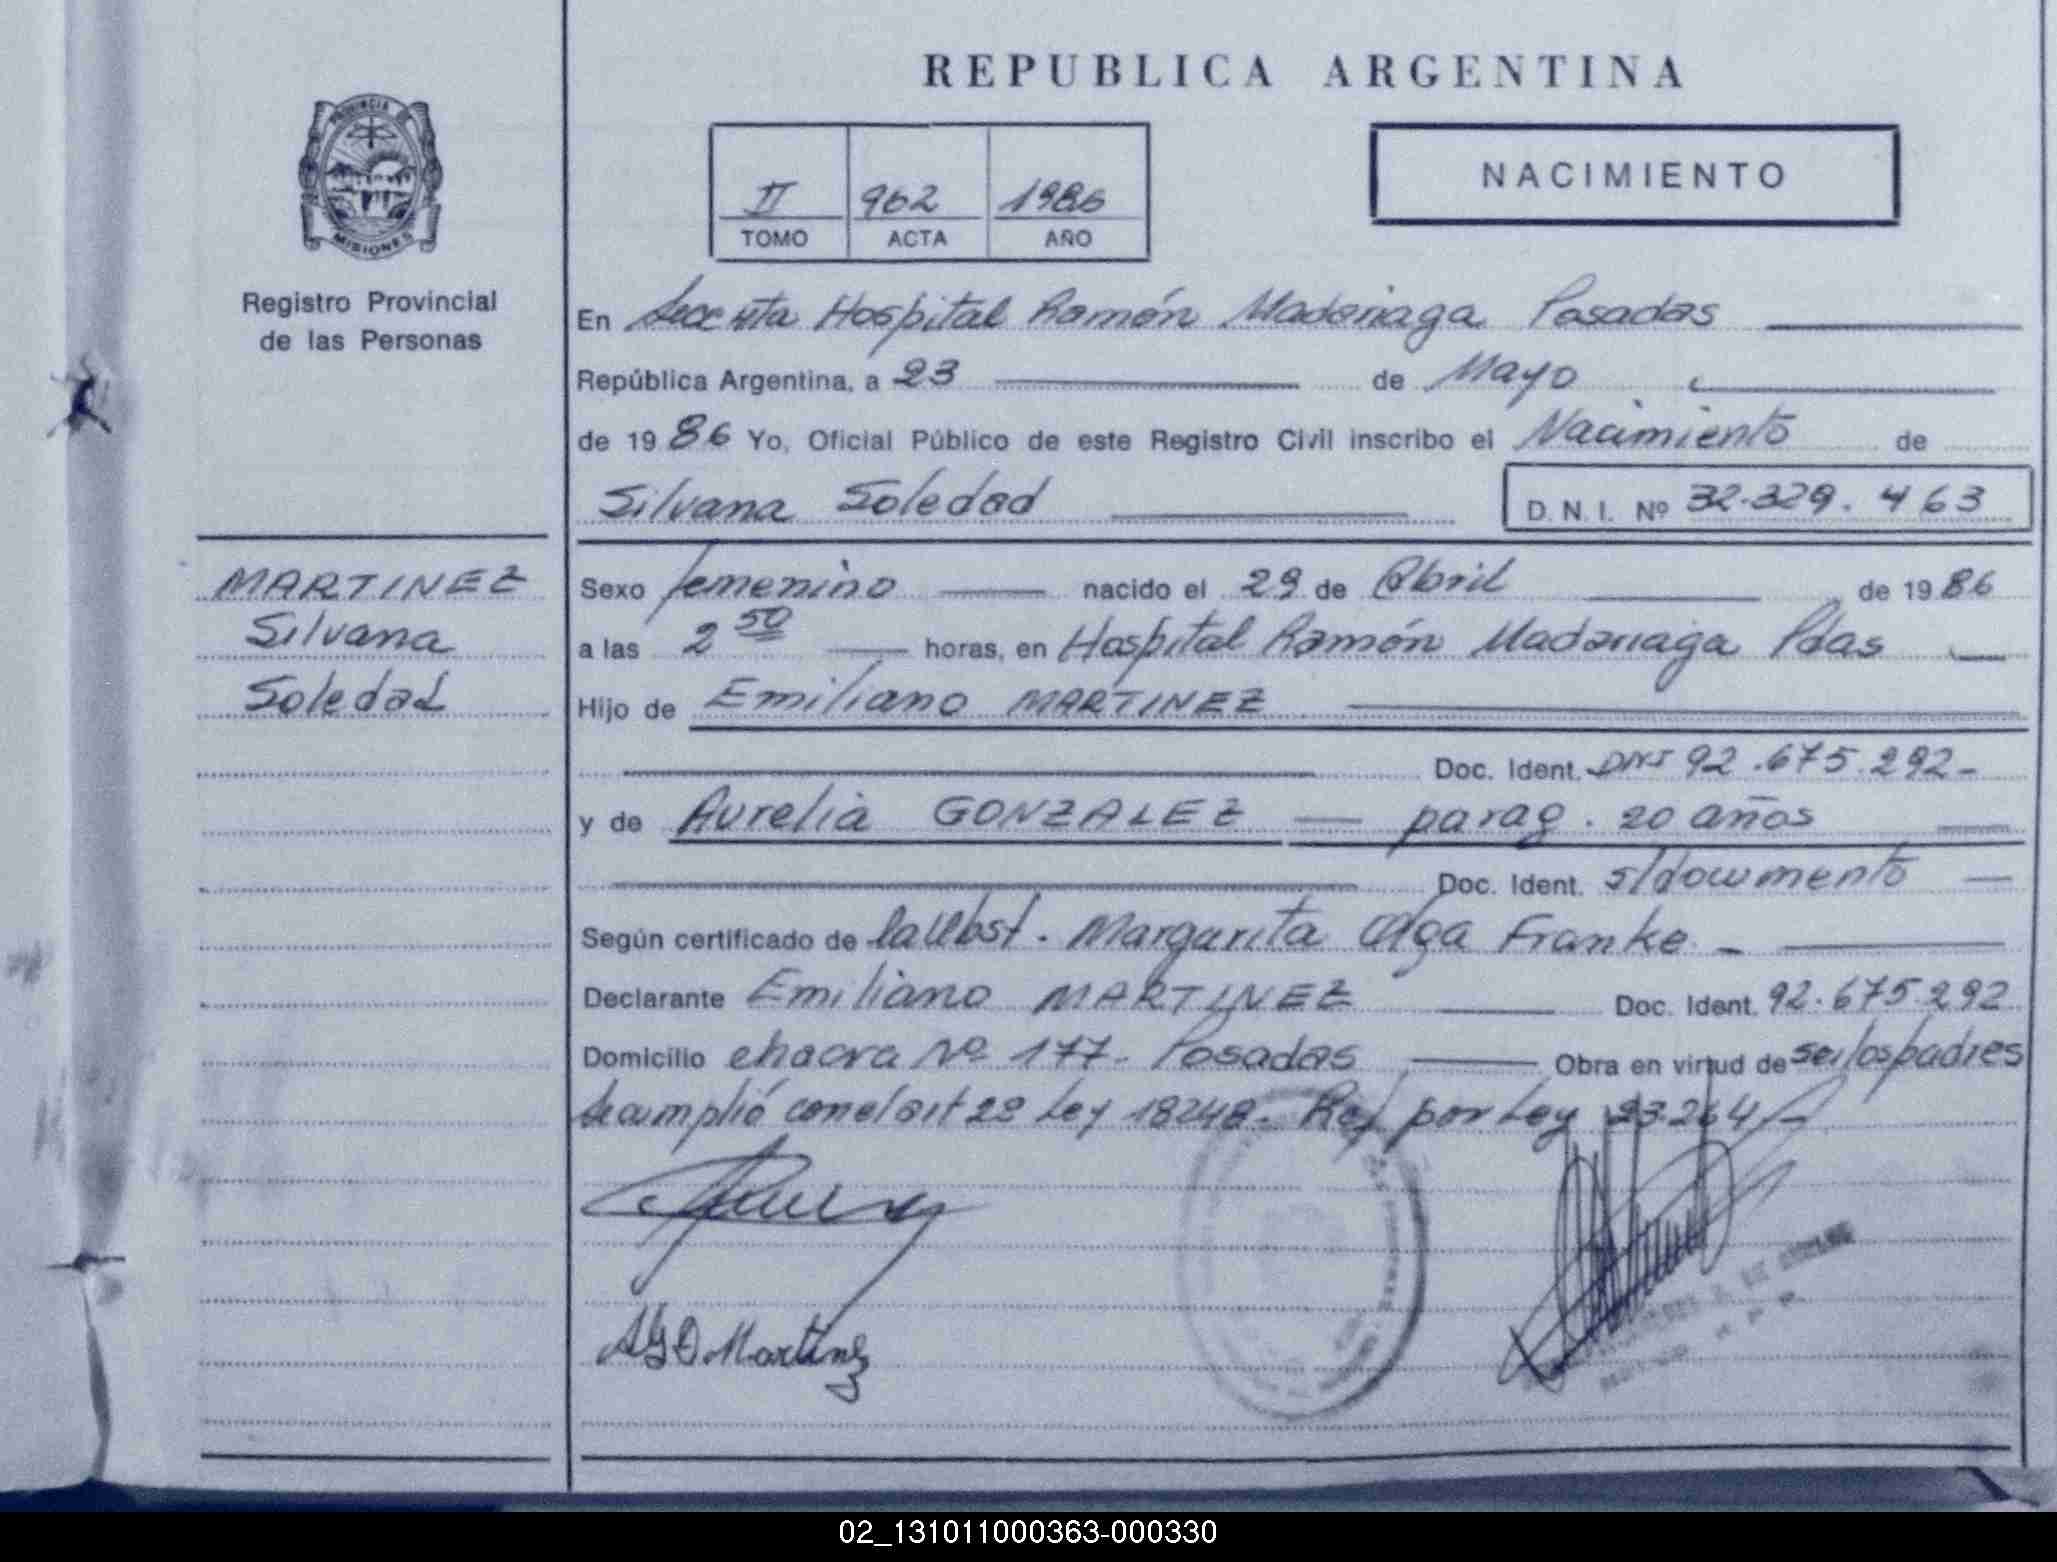 REPUBLICA ARGENTINA
PROVINCIA DE
MISIONES
Registro Provincial
de las Personas
II 962 1986
TOMO ACTA AÑO
NACIMIENTO
En Hospital Ramón Madariaga Posadas
República Argentina, a 23 de Mayo
de 1986 Yo, Oficial Público de este Registro Civil inscribo el Nacimiento de
Silvana Soledad D.N.I. Nº 32.329.463
MARTINEZ
Silvana
Soledad
Sexo femenino nacido el 29 de Abril de 1986
a las 2 50 horas, en Hospital Ramón Madariaga Pdas
Hijo de Emiliano MARTINEZ
Doc. Ident. DNI 92.675.292-
y de Aurelia GONZALEZ parag. 20 años
Doc. Ident. s/documento
Según certificado de la Obst. Margarita Olga Franke
Declarante Emiliano MARTINEZ Doc. Ident. 92.675.292
Domicilio chacra Nº 177- Posadas Obra en virtud de ser los padres
Se cumplió con el art 2º Ley 18248- Ref por Ley 23264/-
A G D Martinez
02_131011000363-000330